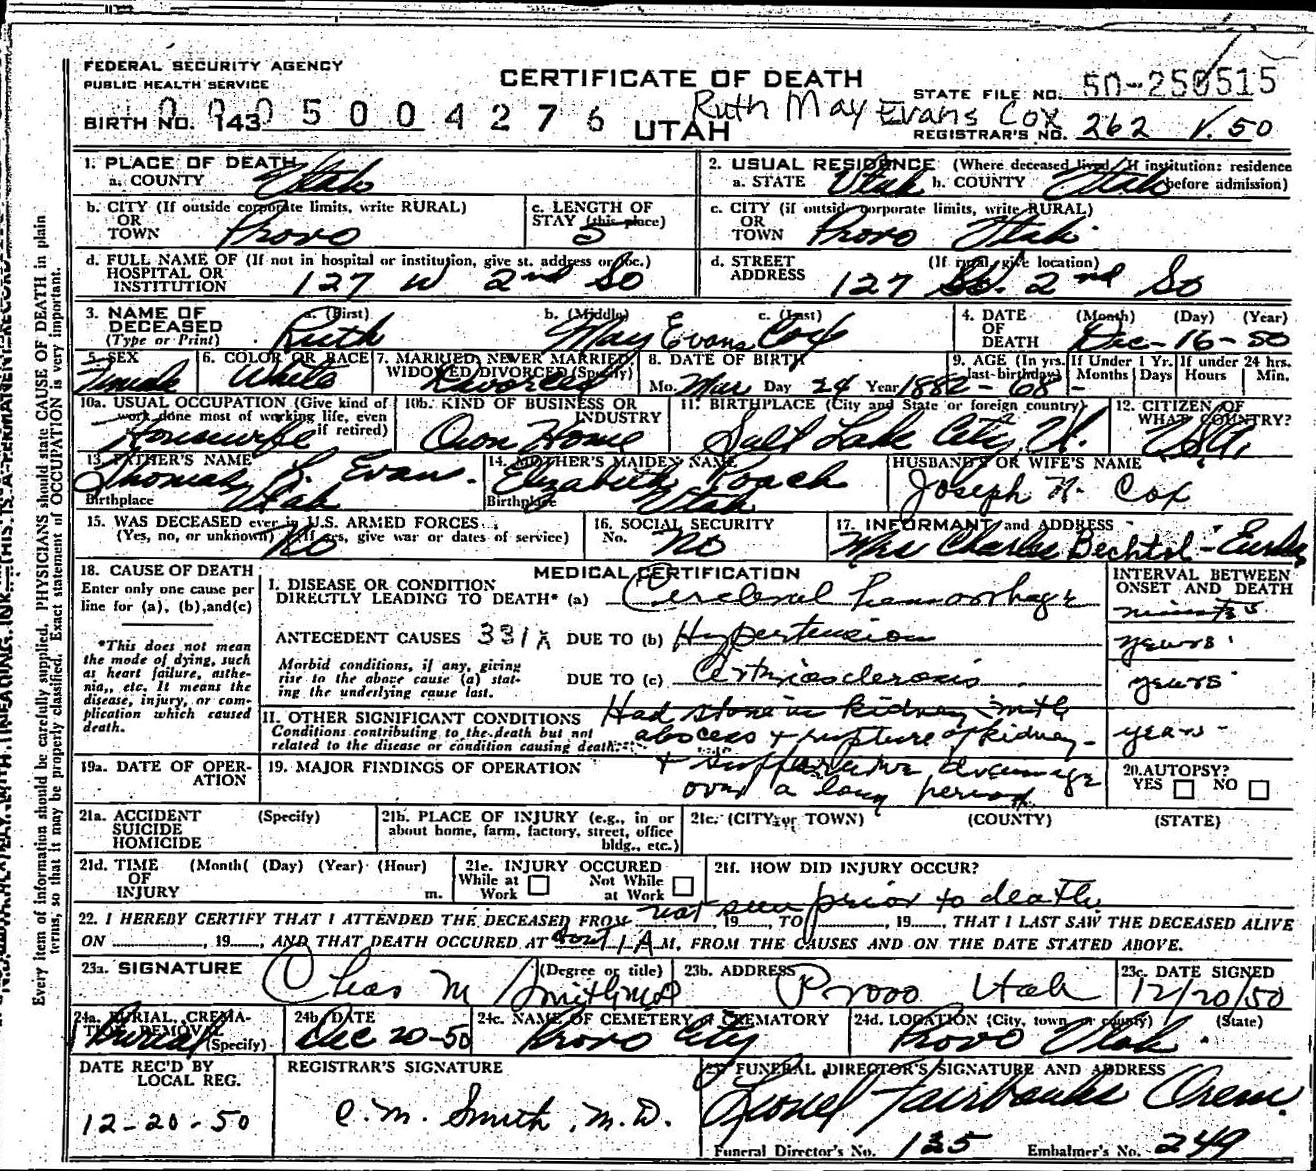 FEDERAL SECURITY AGENCY
PUBLIC HEALTH SERVICE
CERTIFICATE OF DEATH
STATE FILE NO. 50-250515
BIRTH NO. 143
000 5 0 0 4 2 7 6
Ruth May Evans Cox
UTAH
REGISTRAR'S NO. 262 V. 50
1. PLACE OF DEATH
a. COUNTY Utah
2. USUAL RESIDENCE (Where deceased lived. If institution: residence before admission)
a. STATE Utah b. COUNTY Utah
b. CITY (If outside corporate limits, write RURAL)
OR
TOWN Provo
c. LENGTH OF
STAY (this place)
5
c. CITY (if outside corporate limits, write RURAL)
OR
TOWN Provo Utah
d. FULL NAME OF (If not in hospital or institution, give st. address or loc.)
HOSPITAL OR
INSTITUTION 127 W 2nd So
d. STREET (If rural, give location)
ADDRESS 127 2nd So
3. NAME OF DECEASED (Type or Print)
a. (First) b. (Middle) c. (Last)
Ruth May Evans Cox
4. DATE OF DEATH (Month) (Day) (Year)
Dec-16-50
5. SEX
Female
6. COLOR OR RACE
White
7. MARRIED, NEVER MARRIED, WIDOWED DIVORCED (Specify)
Divorced
8. DATE OF BIRTH
Mo. Mar Day 24 Year 1882
9. AGE (In yrs. last-birthday)
68
If Under 1 Yr. Months Days
If under 24 hrs. Hours Min.
10a. USUAL OCCUPATION (Give kind of work done most of working life, even if retired)
Housewife
10b. KIND OF BUSINESS OR INDUSTRY
Own Home
11. BIRTHPLACE (City and State or foreign country)
Salt Lake City, U.
12. CITIZEN OF WHAT COUNTRY?
USA.
13. FATHER'S NAME
Thomas Evans.
Birthplace Utah
14. MOTHER'S MAIDEN NAME
Elizabeth Roach
Birthplace Utah
HUSBAND'S OR WIFE'S NAME
Joseph N. Cox
15. WAS DECEASED ever in U.S. ARMED FORCES
(Yes, no, or unknown) (If yes, give war or dates of service)
No
16. SOCIAL SECURITY
No. No
17. INFORMANT and ADDRESS
Mrs Charles Bechtol - Eureka
18. CAUSE OF DEATH
Enter only one cause per line for (a), (b), and (c)
*This does not mean the mode of dying, such as heart failure, asthenia,, etc. It means the disease, injury, or complication which caused death.
MEDICAL CERTIFICATION
I. DISEASE OR CONDITION
DIRECTLY LEADING TO DEATH* (a) Cerebral hemorrhage
ANTECEDENT CAUSES 331X DUE TO (b) Hypertension
Morbid conditions, if any, giving rise to the above cause (a) stating the underlying cause last.
DUE TO (c) Arteriosclerosis
II. OTHER SIGNIFICANT CONDITIONS
Conditions contributing to the death but not related to the disease or condition causing death
Had stone in kidney with
abscess + rupture of kidney -
+ suppurative drainage
over a long period
INTERVAL BETWEEN
ONSET AND DEATH
minutes
years
years
years
19a. DATE OF OPERATION
19. MAJOR FINDINGS OF OPERATION
20. AUTOPSY?
YES NO
21a. ACCIDENT (Specify)
SUICIDE
HOMICIDE
21b. PLACE OF INJURY (e.g., in or about home, farm, factory, street, office bldg., etc.)
21c. (CITY or TOWN) (COUNTY) (STATE)
21d. TIME (Month( (Day) (Year) (Hour)
OF
INJURY m.
21e. INJURY OCCURED
While at Work Not While at Work
21f. HOW DID INJURY OCCUR?
not seen prior to death
22. I HEREBY CERTIFY THAT I ATTENDED THE DECEASED FROM 19 TO , 19 , THAT I LAST SAW THE DECEASED ALIVE
ON , 19 , AND THAT DEATH OCCURED AT about 1 A M, FROM THE CAUSES AND ON THE DATE STATED ABOVE.
23a. SIGNATURE (Degree or title)
Chas M Smith MD
23b. ADDRESS
Provo Utah
23c. DATE SIGNED
12/20/50
24a. BURIAL, CREMATION, REMOVAL (Specify)
Burial
24b. DATE
Dec 20-50
24c. NAME OF CEMETERY or CREMATORY
Provo City
24d. LOCATION (City, town or county) (State)
Provo Utah.
DATE REC'D BY LOCAL REG.
12-20-50
REGISTRAR'S SIGNATURE
C. M. Smith, M.D.
25. FUNERAL DIRECTOR'S SIGNATURE AND ADDRESS
Lionel Fairbanks Orem.
Funeral Director's No. 135 Embalmer's No. 249
Every item of information should be carefully supplied. PHYSICIANS should state CAUSE OF DEATH in plain
terms, so that it may be properly classified. Exact statement of OCCUPATION is very important.